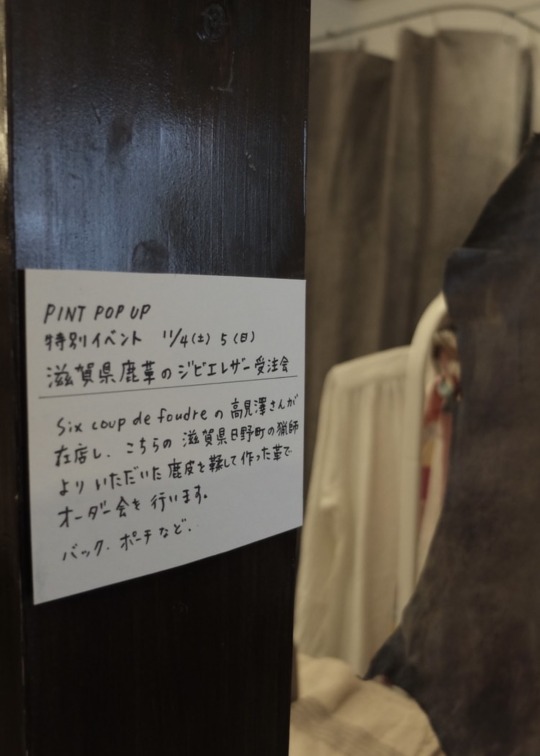 PINT POP UP
特別イベント 11/4(土) 5(日)
滋賀県鹿革のジビエレザー受注会
Six coup de foudreの高見澤さんが
在店し、こちらの滋賀県日野町の猟師
よりいただいた鹿皮を鞣して作った革で
オーダー会を行います。
バック、ポーチなど、